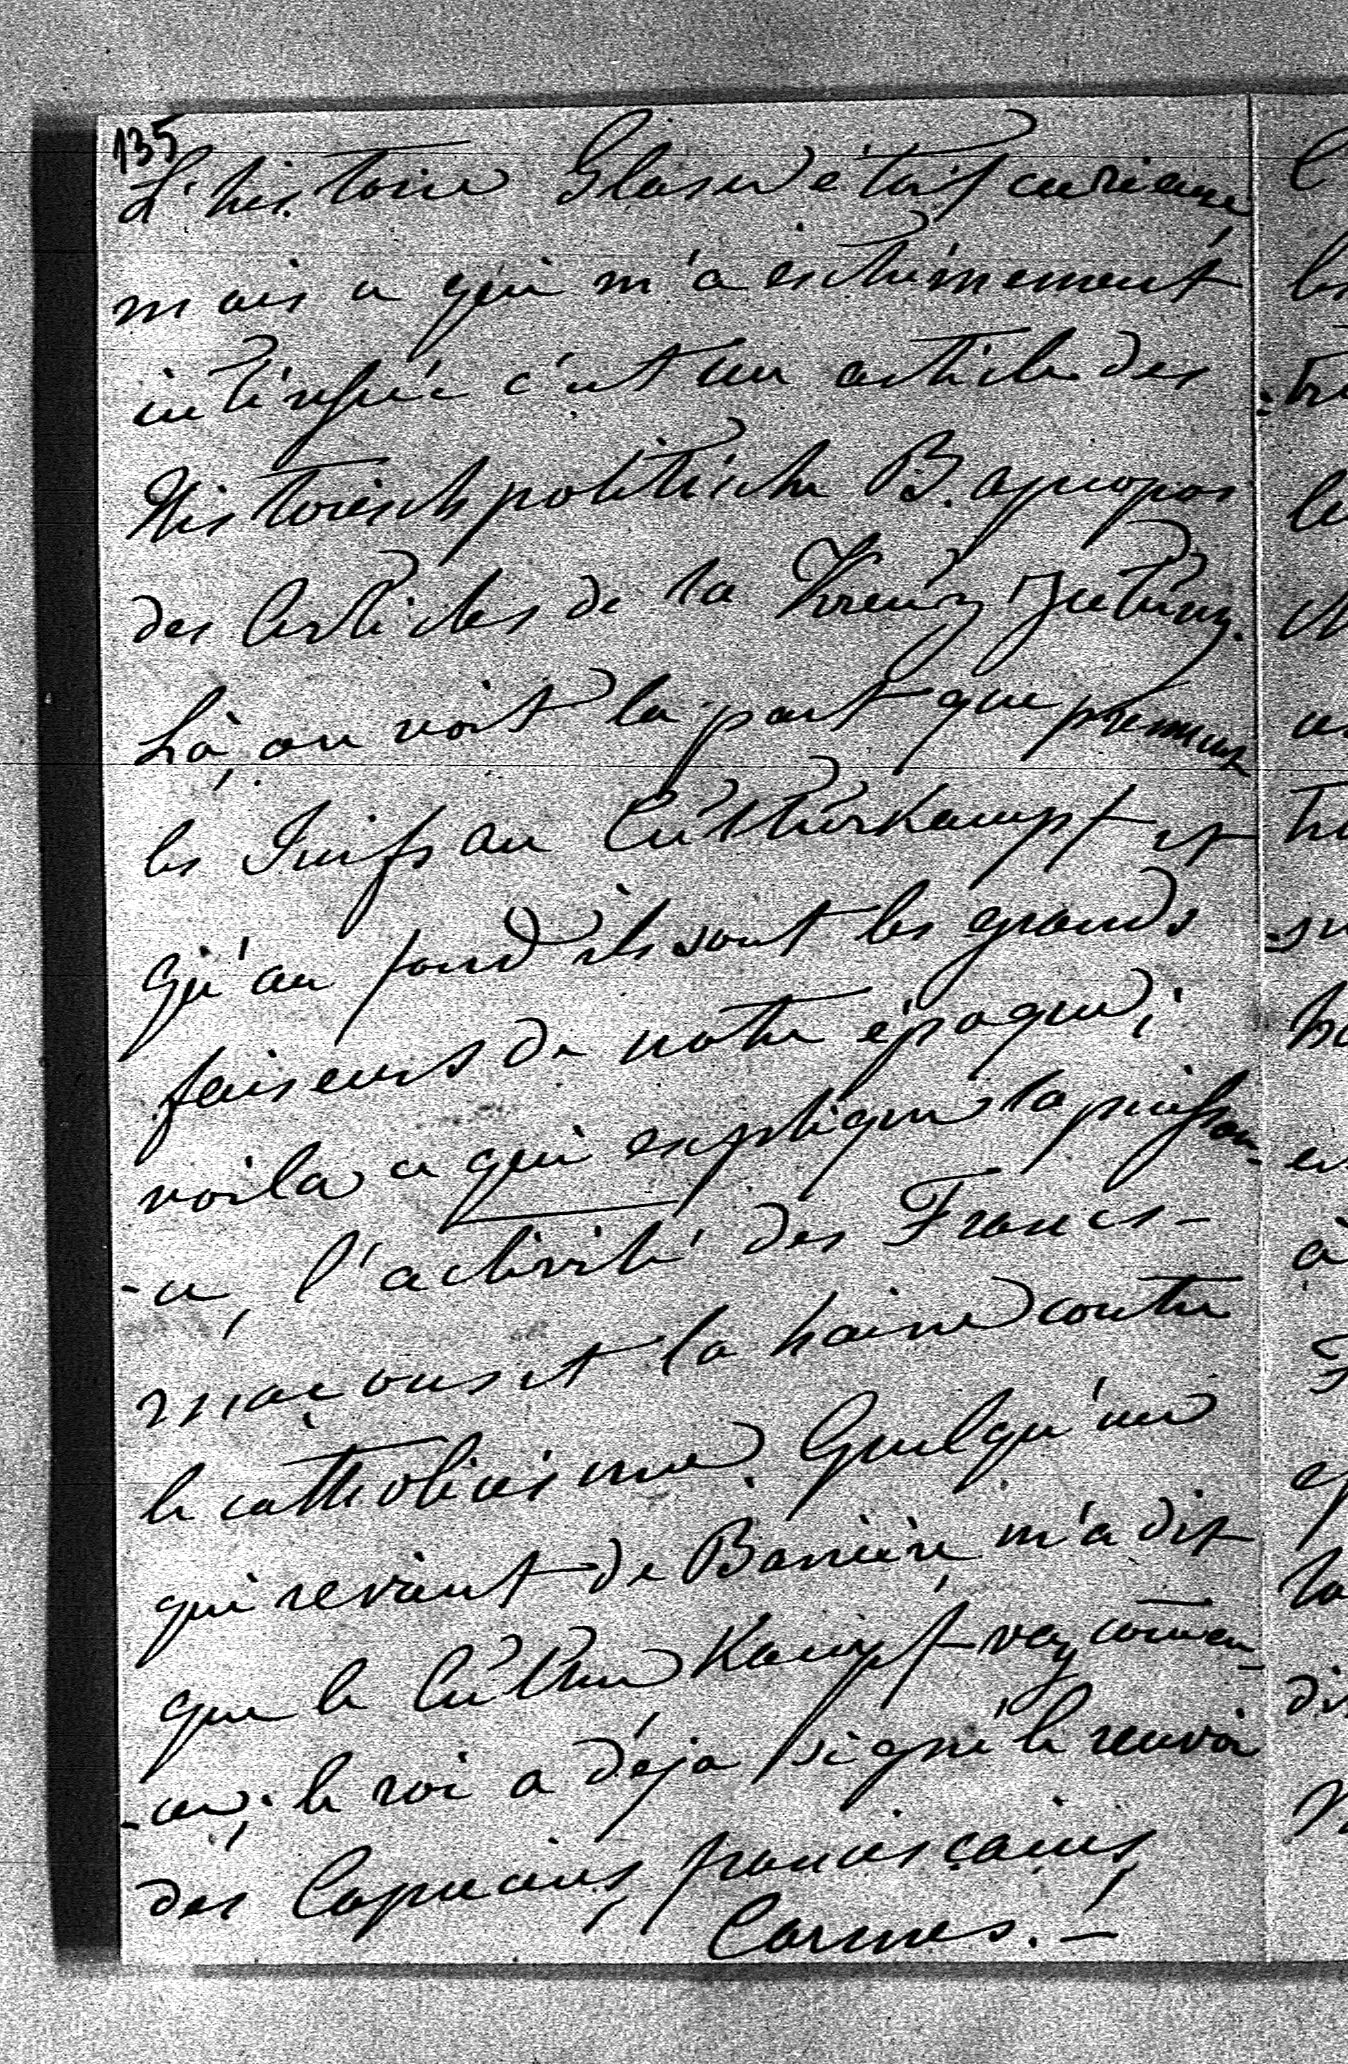 135
L'histoire Glaser était curieuse
mais ce qui m'a extrêmement
intéressée c'est un article des
Historisch politische B. apropos
des articles de la Kreuz Zeitung.
Là, on voit la part que prennent
les Juifs au Culturkampf et
qu'au fond ils sont les grands
faiseurs de notre époque;
voila ce qui explique la puissan-
-ce, l'activité des Francs-
maçons et la haine contre
le catholicisme. Quelqu'un
qui revient de Bavière m'a dit
que le Cultur Kampf va y commen-
-cer; le roi a déja signé le renvoi
des Capucins, franciscains,
Carmes. —